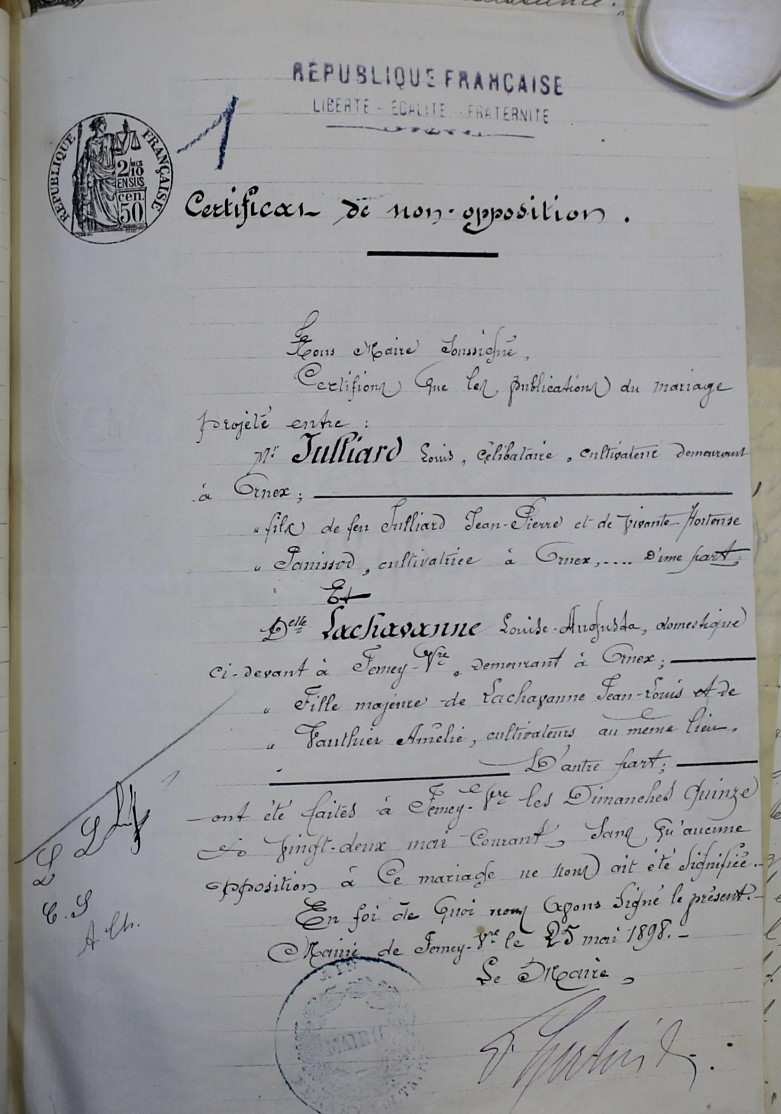 REPUBLIQUE FRANCAISE
LIBERTE - EGALITE - FRATERNITE
1
REPUBLIQUE FRANÇAISE
2/10
EN SUS
50 cen.
Certificat de non-opposition.
Nous Maire Soussigné,
Certifions que les publications du mariage
projeté entre :
Mr Julliard Louis, célibataire, cultivateur demeurant
à Ornex ;
" fils de feu Julliard Jean-Pierre et de vivante Hortense
" Panissod, cultivatrice à Ornex, .... D'une part,
Et
Delle Lachavanne Louise-Augusta, domestique
ci-devant à Ferney-Vre, demeurant à Ornex ;
" Fille majeure de Lachavanne Jean-Louis et de
" Vauthier Amélie, cultivateurs au même lieu.
D'autre part ;
ont été faites à Ferney-Vre les Dimanches quinze
& vingt-deux mai courant, sans qu'aucune
opposition à ce mariage ne nous ait été signifiée.
En foi de quoi nous avons signé le présent.
Mairie de Ferney-Vre le 25 mai 1898.
Le Maire,
L L
C. S
A. Ch.
MAIRIE